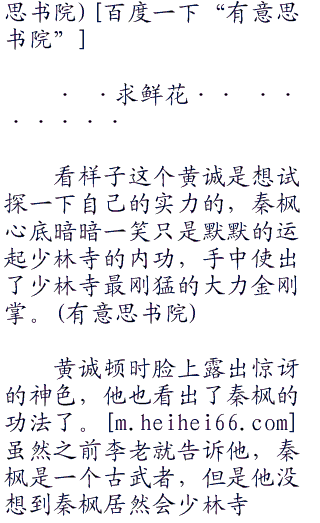 思书院)[百度一下“有意思
书院”]
· ·求鲜花·· ··
·····
看样子这个黄诚是想试
探一下自己的实力的，秦枫
心底暗暗一笑只是默默的运
起少林寺的内功，手中使出
了少林寺最刚猛的大力金刚
掌。(有意思书院)
黄诚顿时脸上露出惊讶
的神色，他也看出了秦枫的
功法了。[m.heihei66.com]
虽然之前李老就告诉他，秦
枫是一个古武者，但是他没
想到秦枫居然会少林寺